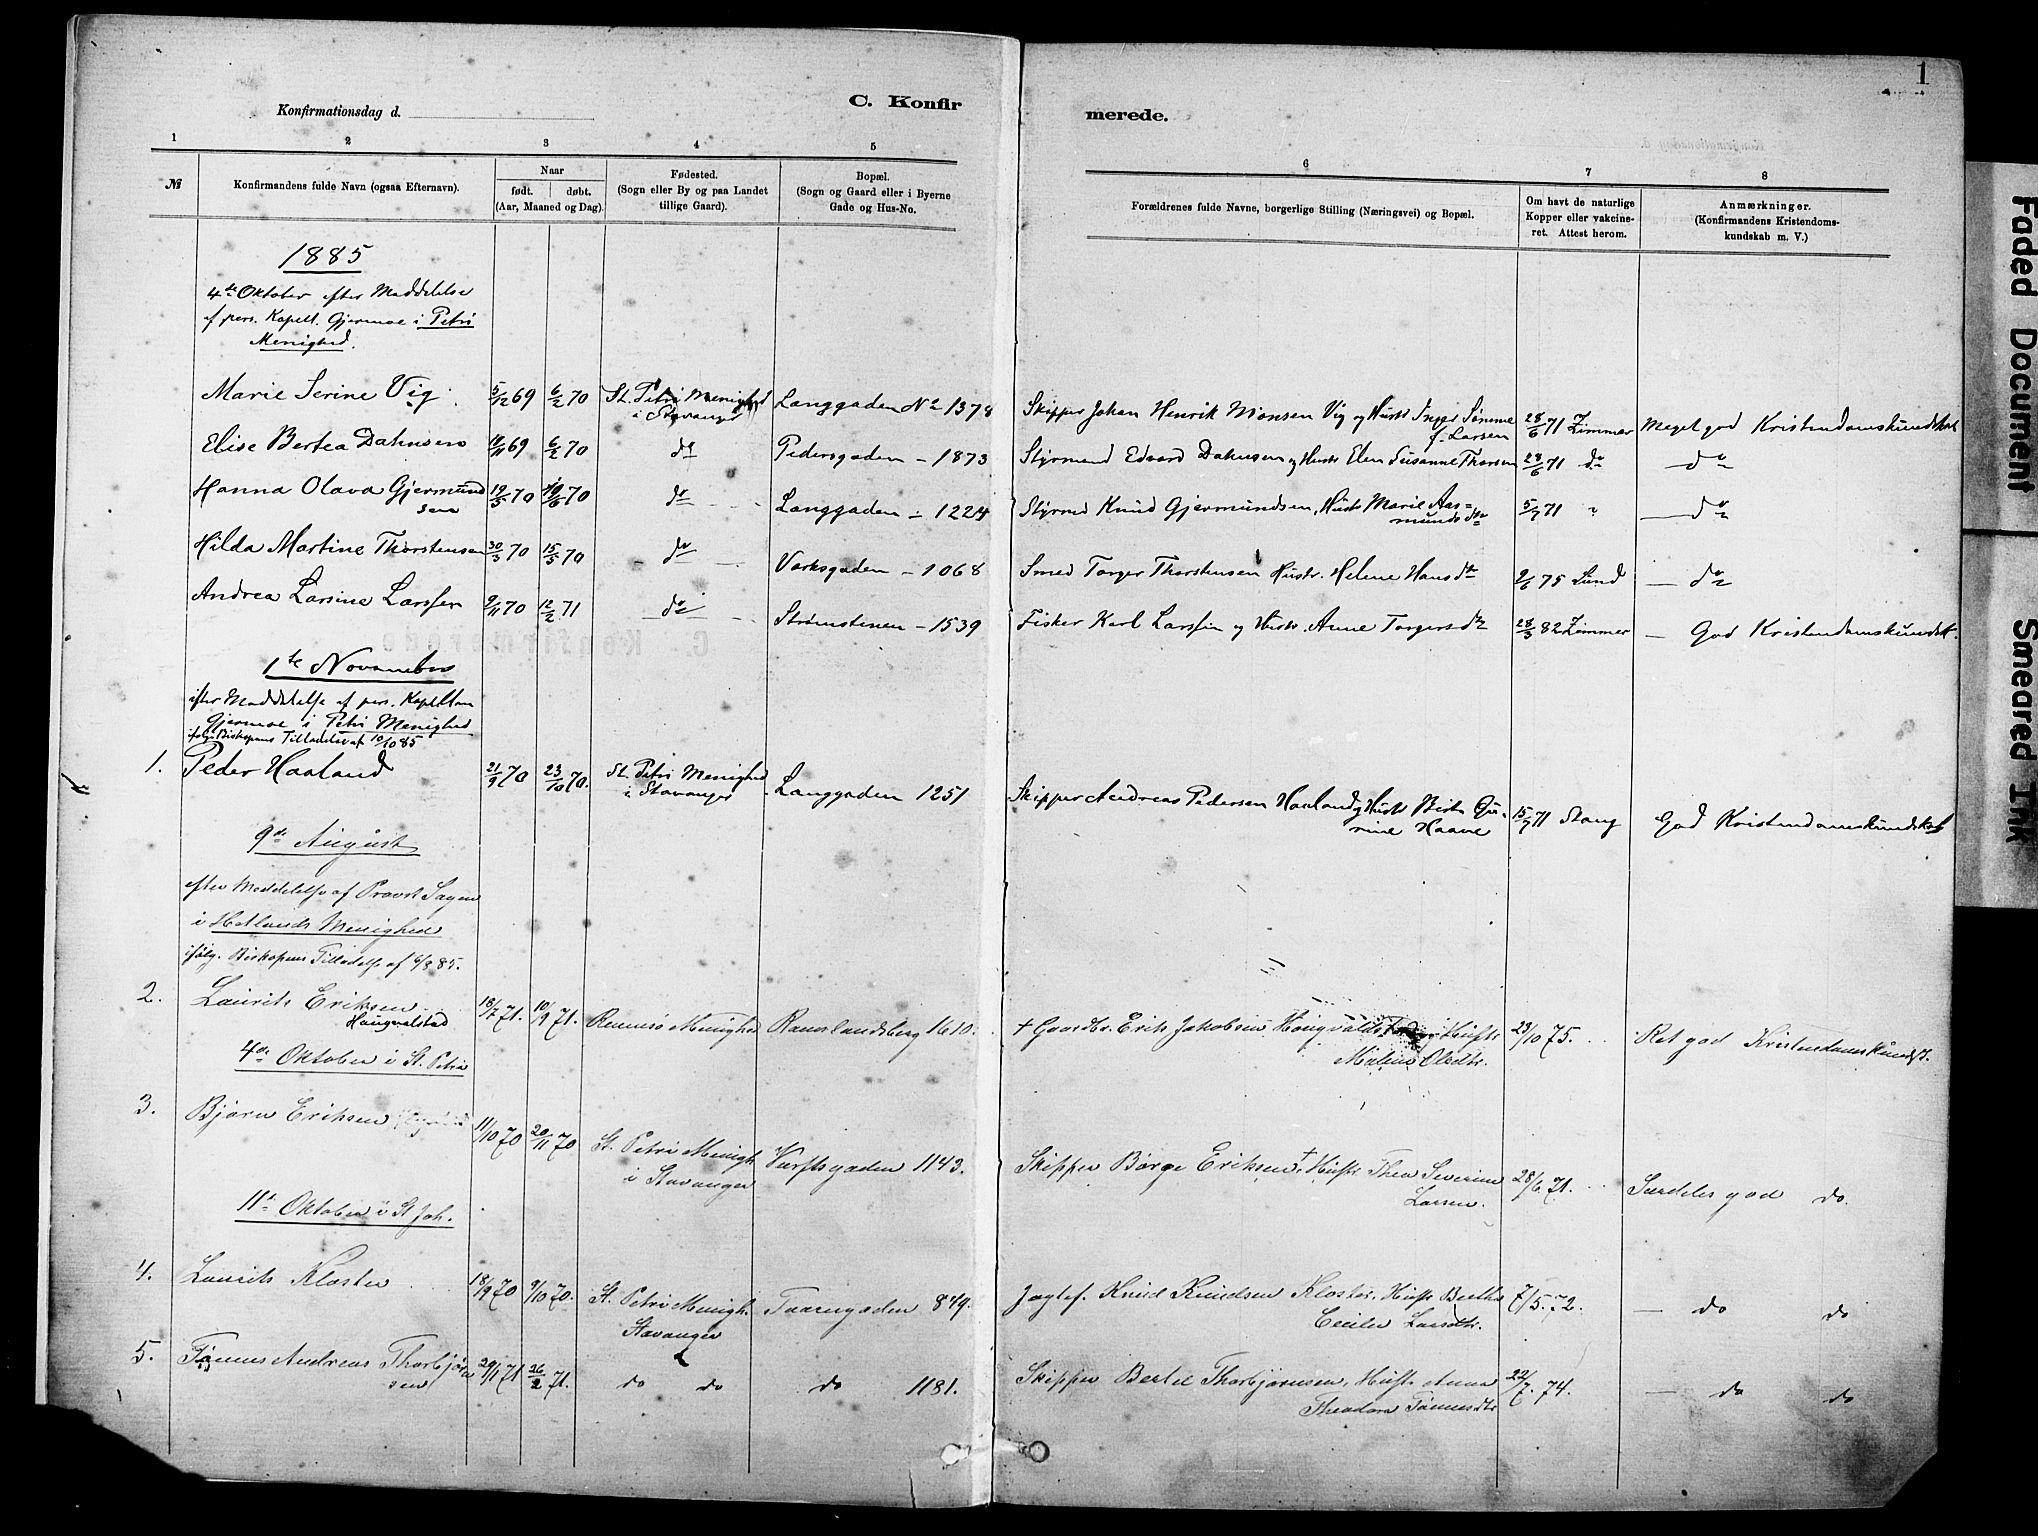 1
Konfirmationsdag d.
C. Konfir
merede.
1 2 3 4 5
6 7 8
№
Konfirmandens fulde Navn (ogsaa Efternavn).
Naar
født. døbt.
(Aar, Maaned og Dag).
Fødested.
(Sogn eller By og paa Landet
tillige Gaard).
Bopæl.
(Sogn og Gaard eller i Byerne
Gade og Hus-No.
Forældrenes fulde Navne, borgerlige Stilling (Næringsvei) og Bopæl.
Om havt de naturlige
Kopper eller vakcine-
ret. Attest herom.
Anmærkninger.
(Konfirmandens Kristendoms-
kundskab m. V.)
1885
4de Oktober efter Meddelelse
af pers. Kapell. Gjermoe i Petri
Menighed.
Marie Serine Vig. 5/12 69 6/2 70 St. Petri Menighed Langgaden No 1378 Skipper Johan Henrik Monsen Vig og Hustr Inger 28/6 71 Zimmer Meget god Kristendomskundskab
i Stavanger
f. Larsen
Elise Bertea Dahnsen 69 6/2 70 do Pedersgaden - 1873 Styrmand Edvard Dahnsen og Hustr. Elen Susanne Thorsen 28/6 71 do do
Hanna Olava Gjermund 19/5 70 70 do Langgaden - 1224 Styrmd Knud Gjermundsen, Hustr Marie Aas= 5/7 71 " do
sen
munds dtr
Hilda Martine Thorstensen 30/3 70 15/5 70 do Varksgaden - 1068 Smed Torger Thorstensen Hustr. Helene Hans dtr 75 Lund do
Andrea Larsine Larssen 9/11 70 12/2 71 do Strømstenen - 1539 Fisker Karl Larssen og Hustr. Anne Torgers dtr 28/3 82 Zimmer - God Kristendomskundsk.
1te November
efter Meddelelse af pers. Kapellan
Gjermoe i Petri Menighed
ifølge Biskopens Tilladelse af 10/10 85
1. Peder Haaland 21/9 70 23/10 70. St. Petri Menighed Langgaden 1251 Skipper Andreas Pedersen Haaland og Hustr Berte Gu= 15/7 71 Stang God Kristendomskundskab
i Stavanger
rine Haave
9de August
efter Meddelelse af Provst Sagen
i Hetlands Menighed
ifølg. Biskopens Tilladelse af 6/8 85.
2. Laurits Eriksen 18/7 71. 10/9 71. Rennesø Menighed Ramslandsberg 1610. † Gaardbr. Erik Jakobsen Hustr 23/10 75. Ret god Kristendomskundsk.
Haugvalstad
Malene Olsdtr.
4de Oktober i St. Petri
3. Bjørn Eriksen 11/10 70 20/11 70 St. Petri Menigh. Værftsgaden 1143. Skipper Børge Eriksen †, Hustr Thea Severine 28/6. 71. Særdeles god do.
i Stavanger
Larsen.
11te Oktober i St Joh.
4. Laurits Kloster 18/9 70 9/10 70. St. Petri Menigh. Taarngaden 849. Jagtef. Knud Knudsen Kloster, Hustr Berthe 7/5. 72. do do
Stavanger
Cecilie Larsdtr.
5. Tønnes Andreas Thorbjørn 29/1 71 26/2 71. do do do 1181. Skipper Bertel Thorbjørnsen, Hustr. Anna 22/7. 74. do do
sen
Theodora Tønnesdtr
Faded Document
Smeared Ink